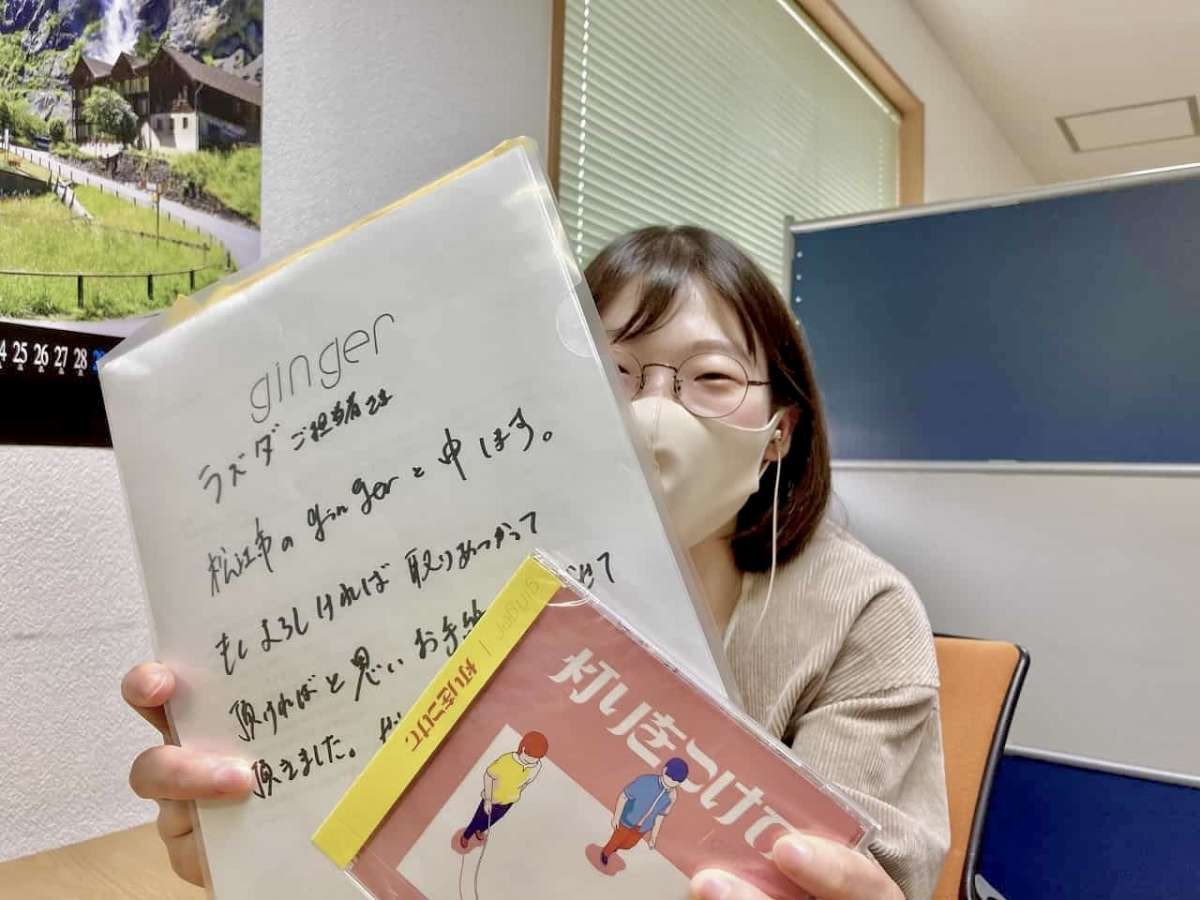 24 25 26 27 28 29
ginger
ラズダ ご担当者さま
松江市の gingerと申します。
もしよろしければ 取りあつかって
頂ければと思い お手紙
頂きました。
ginger | 灯りをつけて
灯りをつけて